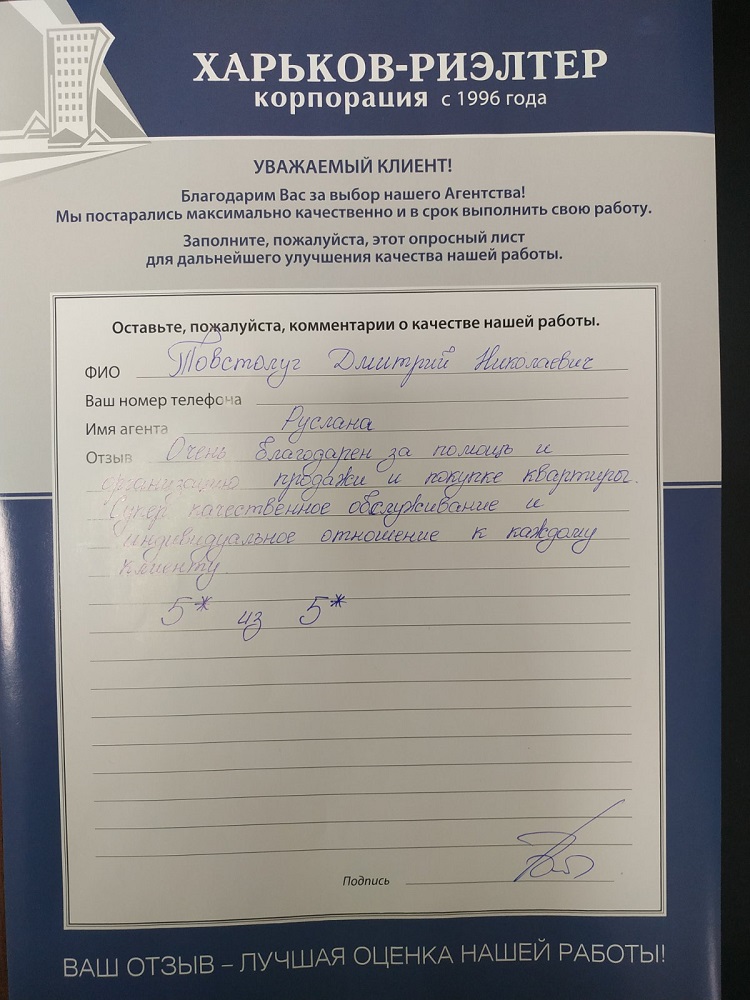 ХАРЬКОВ-РИЭЛТЕР
корпорация с 1996 года
УВАЖАЕМЫЙ КЛИЕНТ!
Благодарим Вас за выбор нашего Агентства!
Мы постарались максимально качественно и в срок выполнить свою работу.
Заполните, пожалуйста, этот опросный лист
для дальнейшего улучшения качества нашей работы.
Оставьте, пожалуйста, комментарии о качестве нашей работы.
ФИО Товстолуг Дмитрий Николаевич
Ваш номер телефона
Имя агента Руслана
Отзыв Очень благодарен за помощь и
организацию продажи и покупке квартиры.
Супер качественное обслуживание и
индивидуальное отношение к каждому
клиенту
5* из 5*
Подпись
ВАШ ОТЗЫВ – ЛУЧШАЯ ОЦЕНКА НАШЕЙ РАБОТЫ!